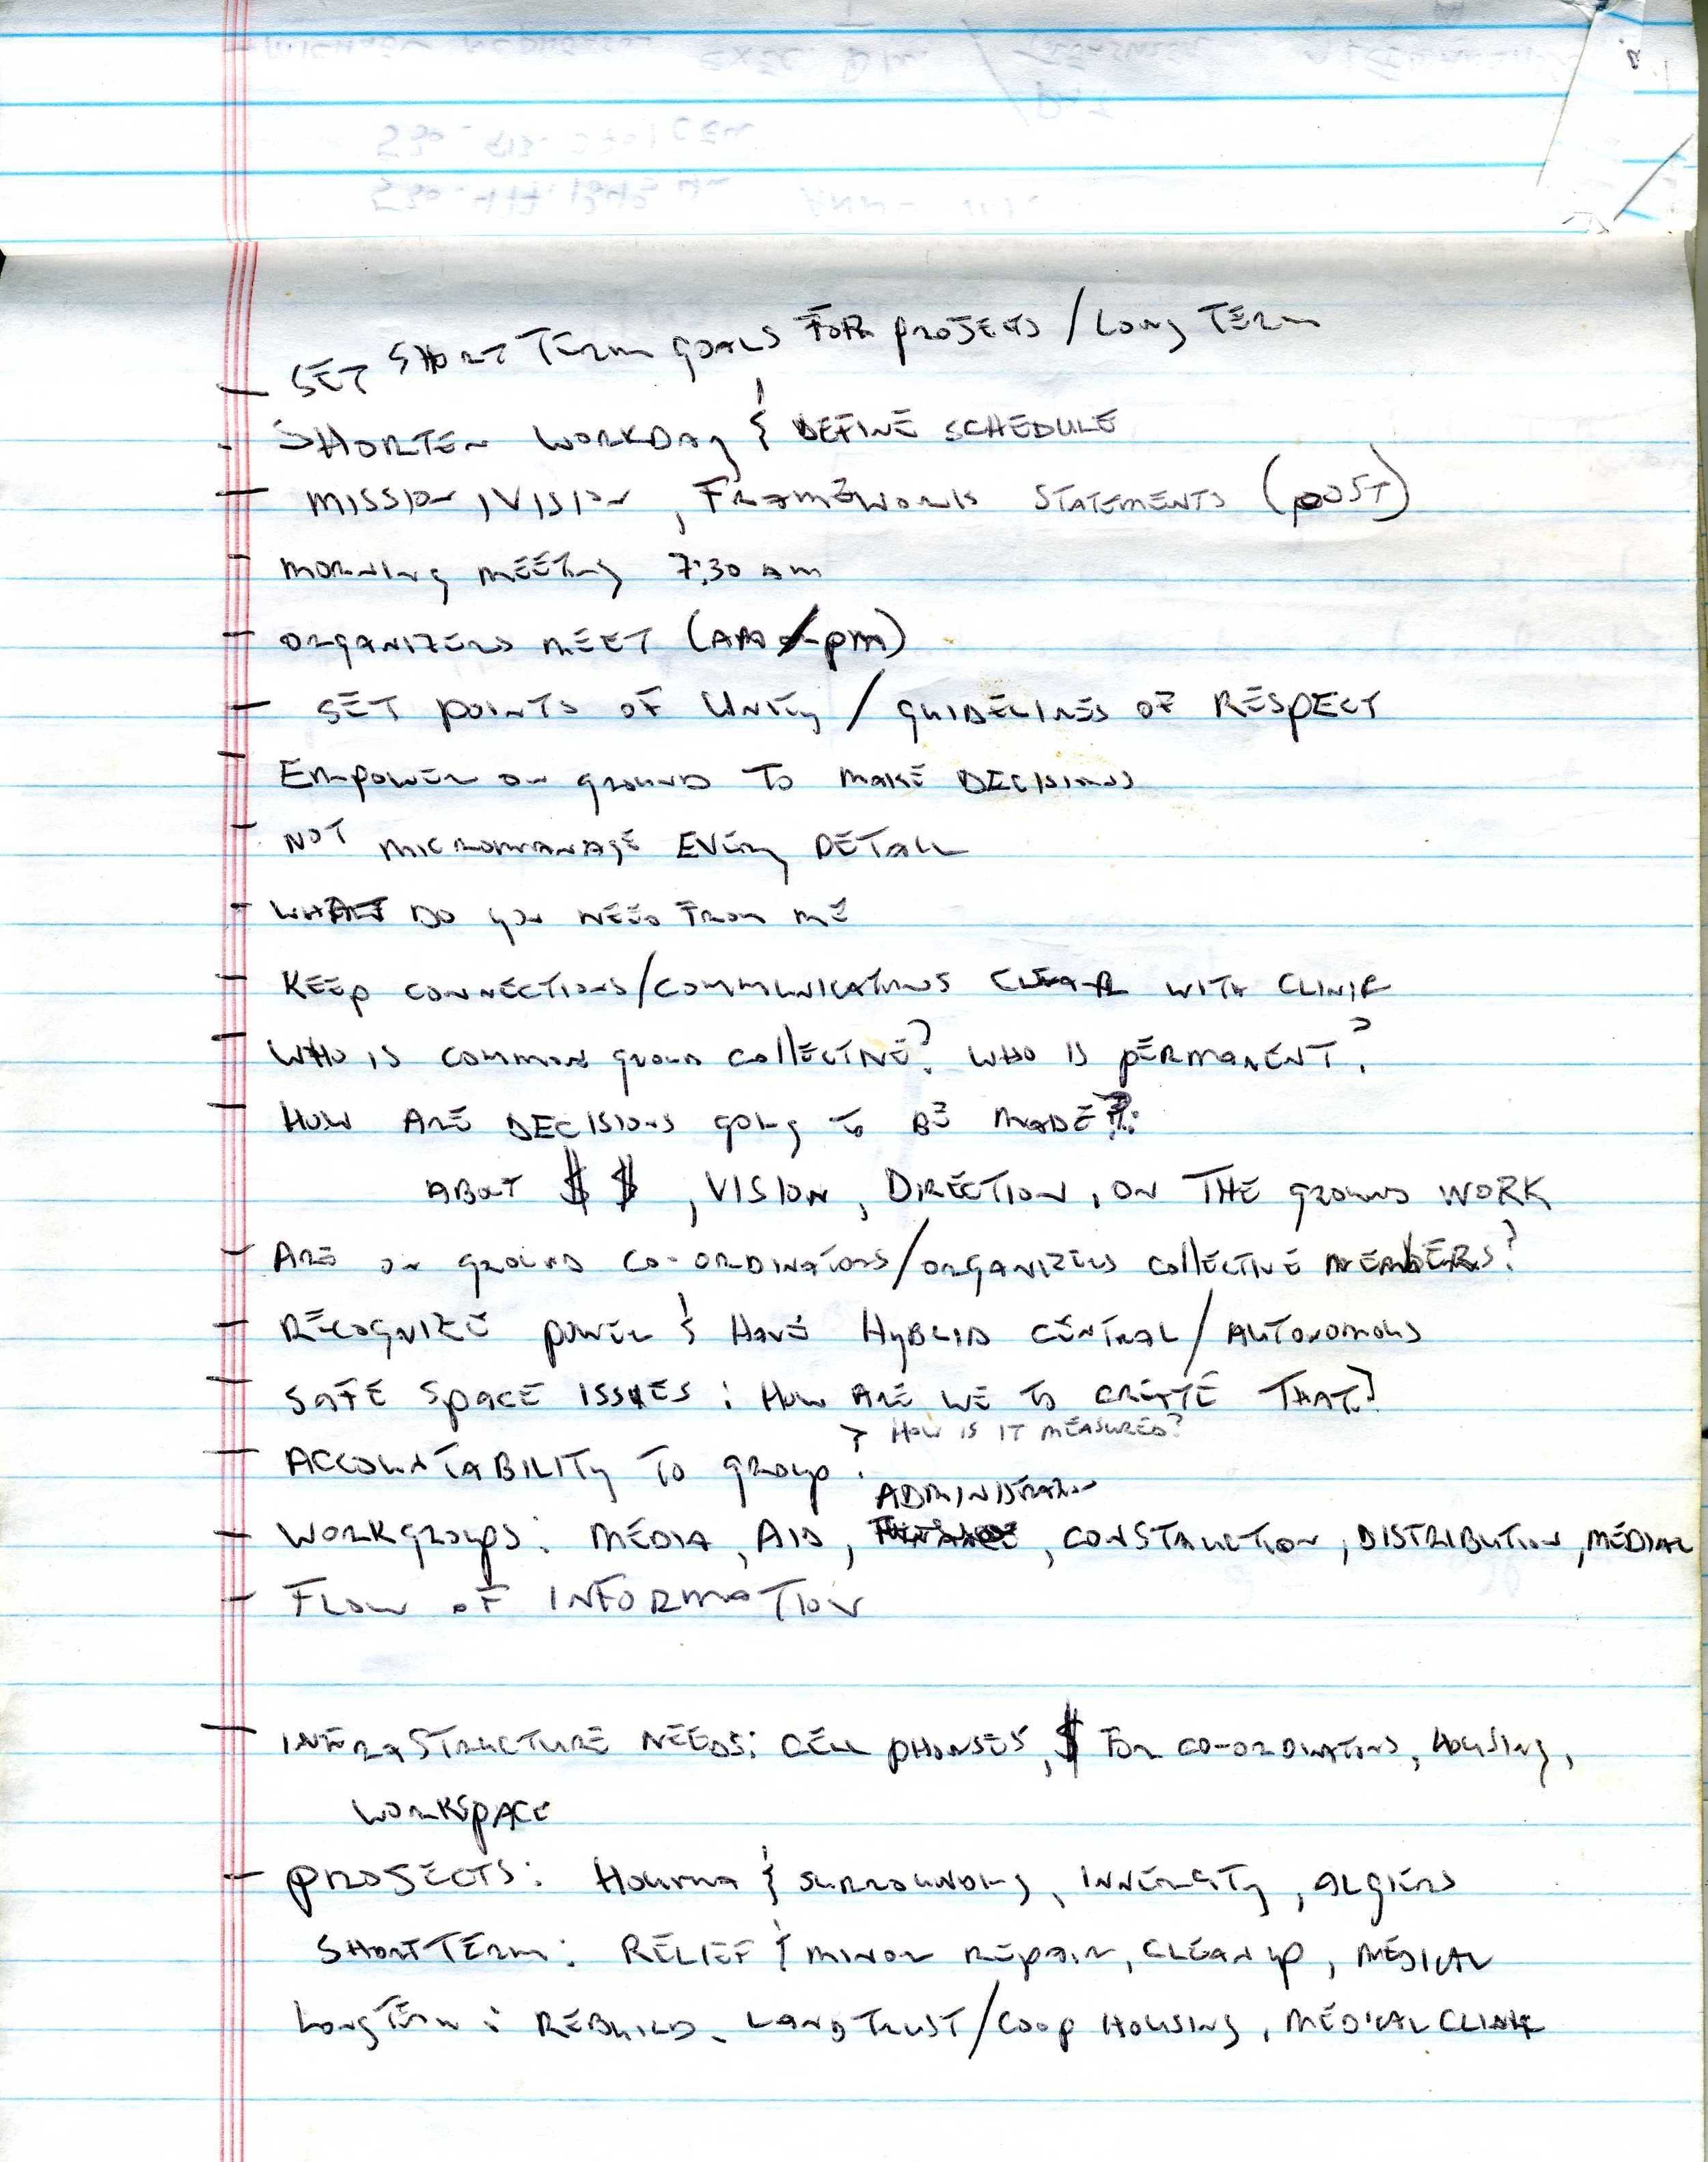 - SET SHORT TERM GOALS FOR PROJECTS / LONG TERM
- SHORTEN WORKDAY & DEFINE SCHEDULE
- MISSION, VISION, FRAMEWORKS STATEMENTS (POST)
- MORNING MEETING 7:30 AM
- ORGANIZERS MEET (AM / PM)
- SET POINTS OF UNITY / GUIDELINES OF RESPECT
- EMPOWER ON GROUND TO MAKE DECISIONS
- NOT MICROMANAGE EVERY DETAIL
- WHAT DO YOU NEED FROM ME
- KEEP CONNECTIONS/COMMUNICATIONS CLEAR WITH CLINIC
- WHO IS COMMON GROUND COLLECTIVE? WHO IS PERMANENT?
- HOW ARE DECISIONS GOING TO BE MADE?:
ABOUT $ $, VISION, DIRECTION, ON THE GROUND WORK
- ARE ON GROUND CO-ORDINATORS/ORGANIZERS COLLECTIVE MEMBERS?
- RECOGNIZE POWER & HAVE HYBRID CENTRAL / AUTONOMOUS
- SAFE SPACE ISSUES: HOW ARE WE TO CREATE THAT?
? HOW IS IT MEASURED?
- ACCOUNTABILITY TO GROUP.
ADMINISTRATION
- WORKGROUPS: MEDIA, AID, FINANCE, CONSTRUCTION, DISTRIBUTION, MEDICAL
- FLOW OF INFORMATION
- INFRASTRUCTURE NEEDS: CELL PHONSES, $ FOR CO-ORDINATORS, HOUSING,
WORKSPACE
- PROJECTS: HOUMA & SURROUNDING, INNERCITY, ALGIERS
SHORT TERM: RELIEF & MINOR REPAIR, CLEAN UP, MEDICAL
LONG TERM: REBUILD, LAND TRUST/COOP HOUSING, MEDICAL CLINIC